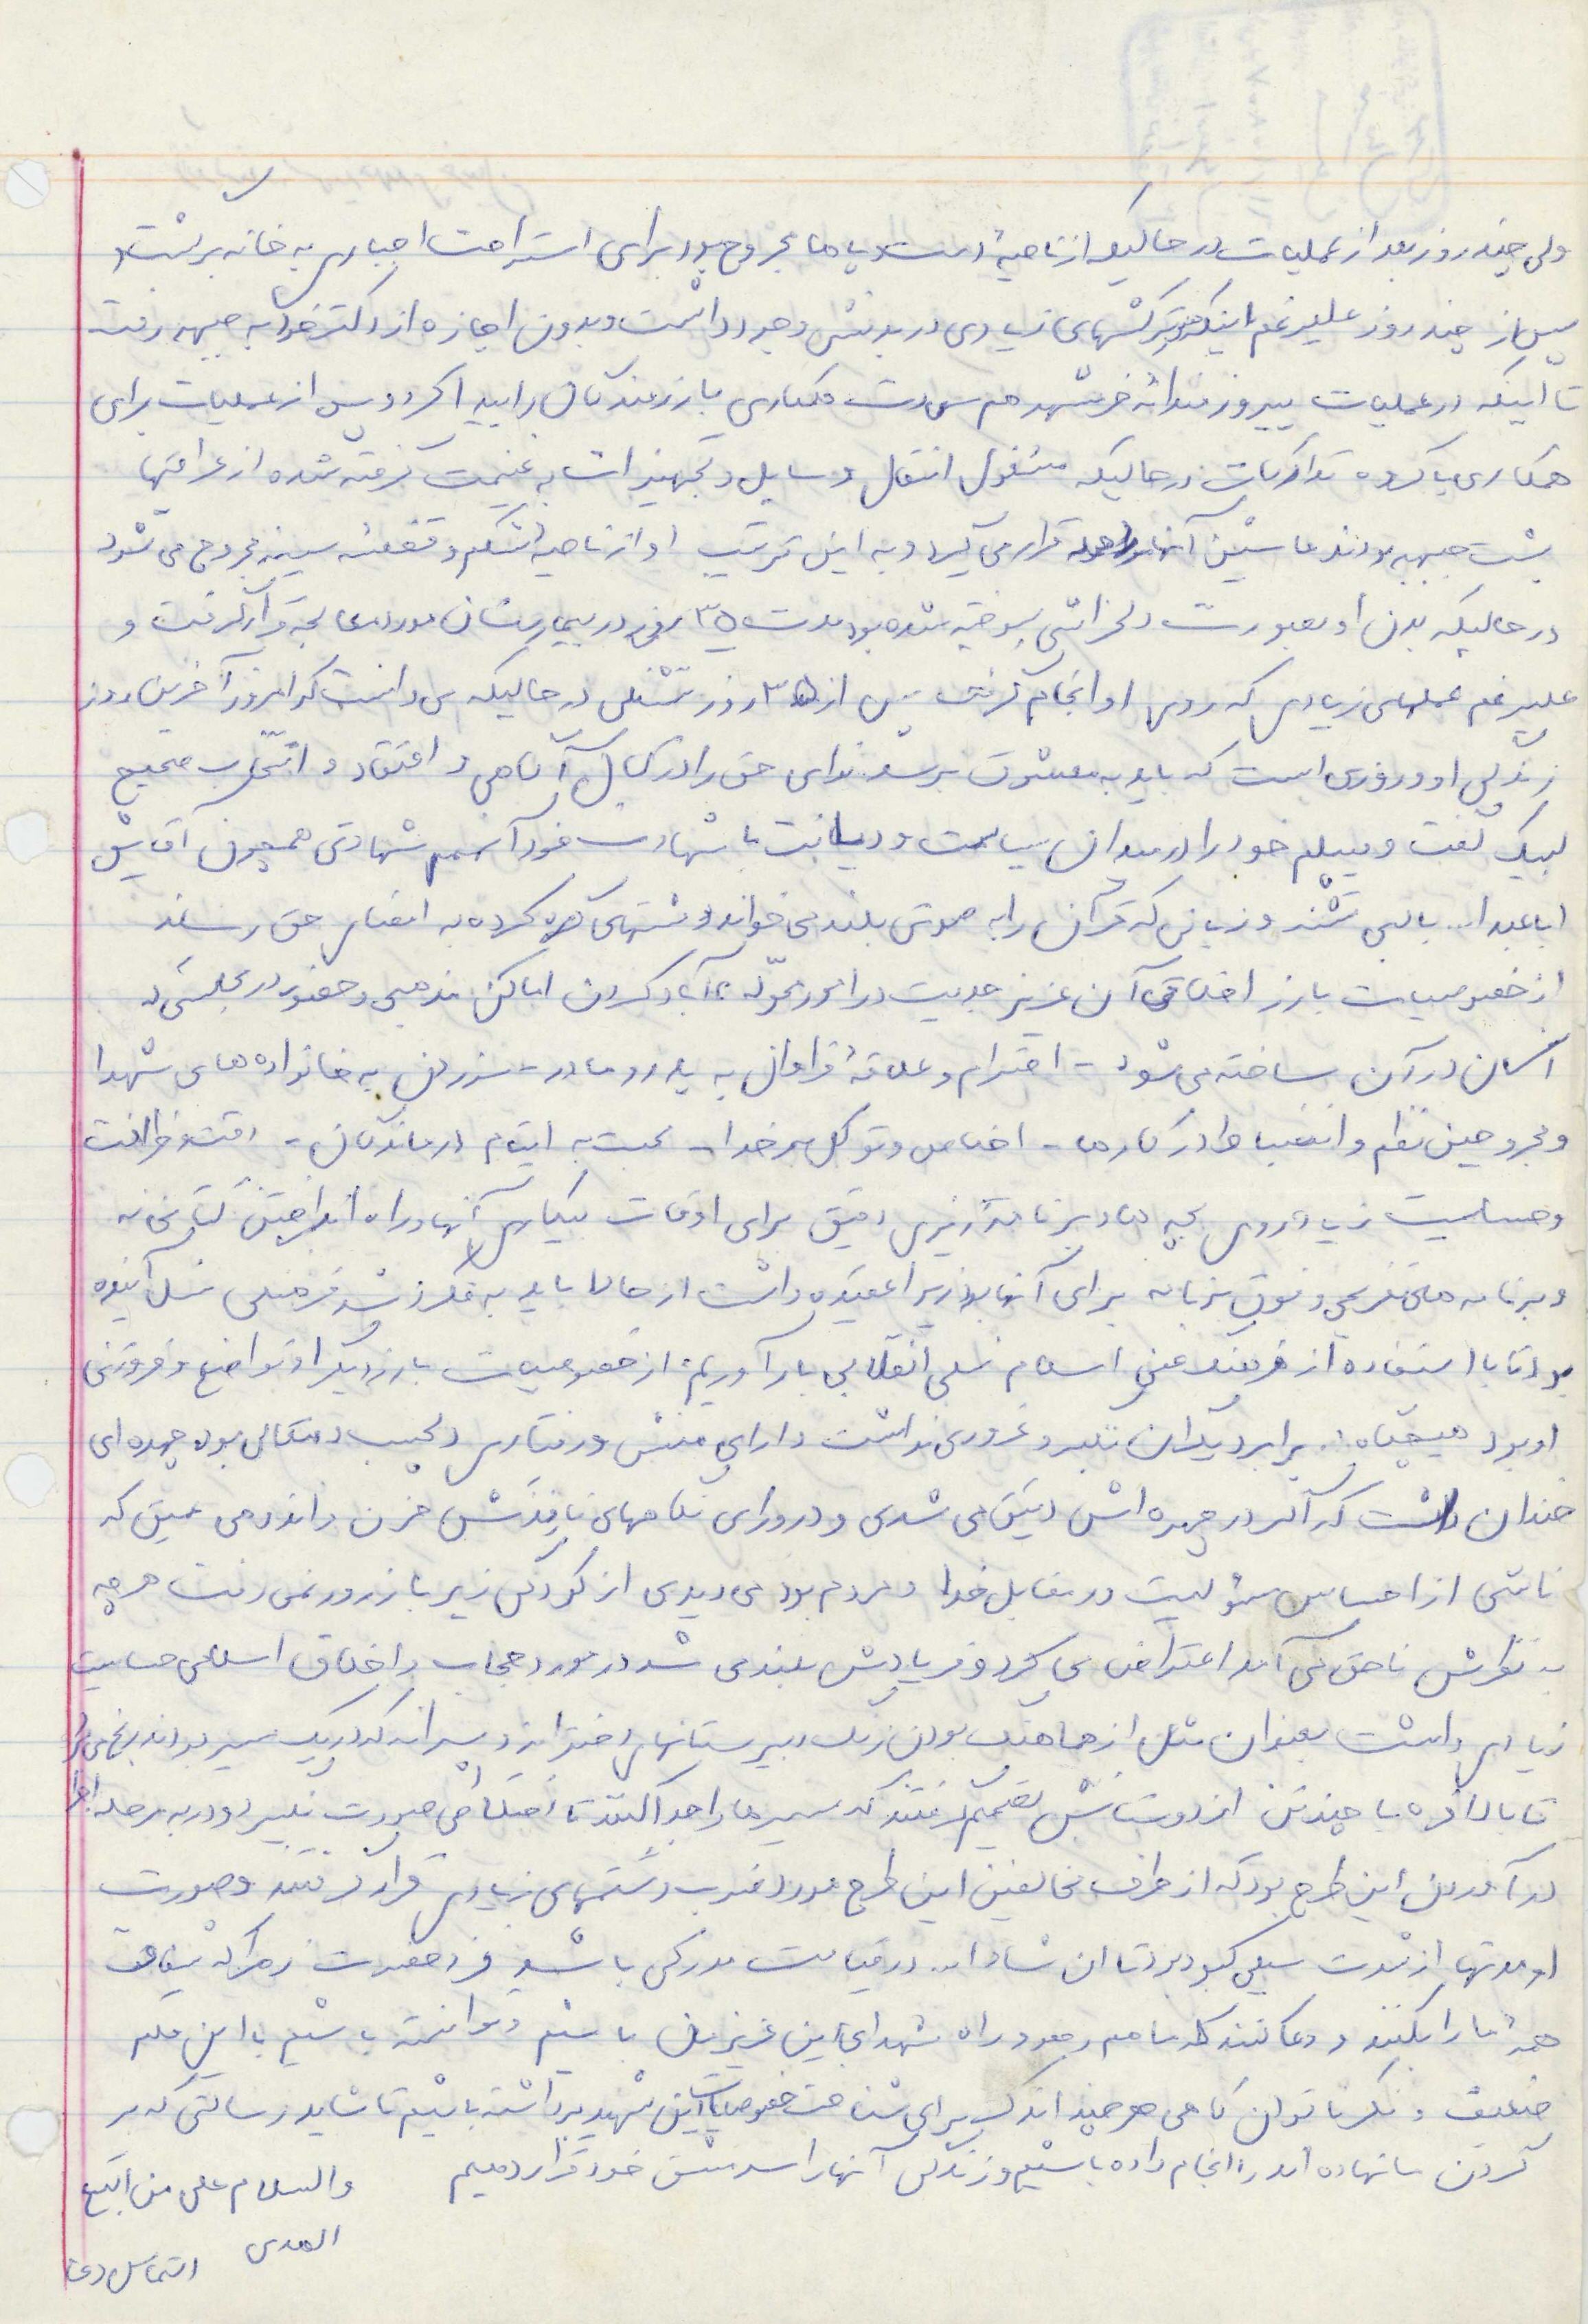 ولی چند روز بعد از عملیات در حالیکه از ناحیهٔ دست و پاها مجروح بود برای استراحت اجباری به خانه برگشت و
پس از چند روز علیرغم اینکه ترکشهای زیادی در بدنش وجود داشت و بدون اجازه از دکتر خود به جبهه رفت
تا اینکه در عملیات پیروزمندانه خرمشهر هم سعادت همکاری با رزمندگان را پیدا کرد و پس از عملیات برای
همکاری با گروه تدارکات در حالیکه مشغول انتقال وسایل و تجهیزات به غنیمت گرفته شده از عراقیها
پشت جبهه بودند ماشین آنها مورد حمله قرار می گیرد و به این ترتیب او از ناحیه شکم و قفسه سینه مجروح می شود
در حالیکه بدن او بصورت دلخراشی سوخته شده بود مدت ۳۵ روز در بیمارستان مورد معالجه قرار گرفت و
علیرغم عملهای زیادی که روی او انجام گرفت پس از ۳۵ روز تشنگی در حالیکه می دانست که امروز آخرین روز
زندگی او و روزی است که باید به معشوق برسد ندای حق را در کمال آگاهی و اعتقاد و انتخاب صحیح
لبیک گفت و پیام خود را در میدان سیاست و دیانت با شهادت خود آنهم شهادتی همچون آقایش
اباعبدا... با لبی تشنه و زبانی که قرآن را به صوتی بلند می خواند و مشتهای گره کرده به امضای حق رساند
از خصوصیات بارز اخلاقی آن عزیز جدیت در امور محوله - آباد کردن اماکن مذهبی و حضور در مجالسی که
انسان در آن ساخته می شود - احترام و علاقهٔ فراوان به پدر و مادر - سر زدن به خانواده های شهدا
و مجروحین نظم و انضباط در کارها - اخلاص و توکل بر خدا - محبت به ایتام درماندگان - دقت و ظرافت
و حساسیت زیاد روی بچه ها و برنامه ریزی دقیق برای اوقات بیکاری آنها و راه انداختن کتابخانه
و برنامه های تفریحی و فوق برنامه برای آنها بود زیرا عقیده داشت از حالا باید به فکر رشد فرهنگی نسل آینده
بود تا با استفاده از فرهنگ غنی اسلام نسلی انقلابی بار آوریم. از خصوصیات بارز دیگر او تواضع و فروتنی
او بود هیچگاه در برابر دیگران تکبر و غروری نداشت دارای منش و رفتاری دلچسب و متعالی بود چهره ای
خندان داشت که اگر در چهره اش دقیق می شدی و در ورای نگاههای نافذش حزن و اندوهی عمیق که
ناشی از احساس مسئولیت در مقابل خدا و مردم بود می دیدی از کودکی زیر بار زور نمی رفت هر چه
به نظرش ناحق می آمد اعتراض می کرد و فریادش بلند می شد در مورد حجاب و اخلاق اسلامی حساسیت
زیادی داشت بعنوان مثل از هماهنگ بودن زنگ دبیرستانهای دخترانه و پسرانه که در یک مسیر بودند رنج می برد
تا بالاخره با چند تن از دوستانش تصمیم گرفتند که مسیرها را جدا کنند تا اختلاطی صورت نگیرد و در به مرحله اجرا
در آوردن این طرح بود که از طرف مخالفین این طرح مورد ضرب و شتمهای زیادی قرار گرفتند و صورت
او مدتها از شدت سیلی کبود بود تا ان شاء ا... در قیامت مدرکی باشد نزد حضرت زهرا که شفاعت
همهٔ ما را بکنند و دعا کنند که ما هم رهرو راه شهدای این عزیزمان باشیم و توانسته باشیم با این قلم
ضعیف و فکر ناتوان گامی هر چند اندک برای شناخت خصوصیات این شهید برداشته باشیم تا شاید رسالتی که بر
گردن ما نهاده اند را انجام داده باشیم و زندگی آنها را سرمشق خود قرار دهیم
والسلام علی من اتبع
الهدی
التماس دعا